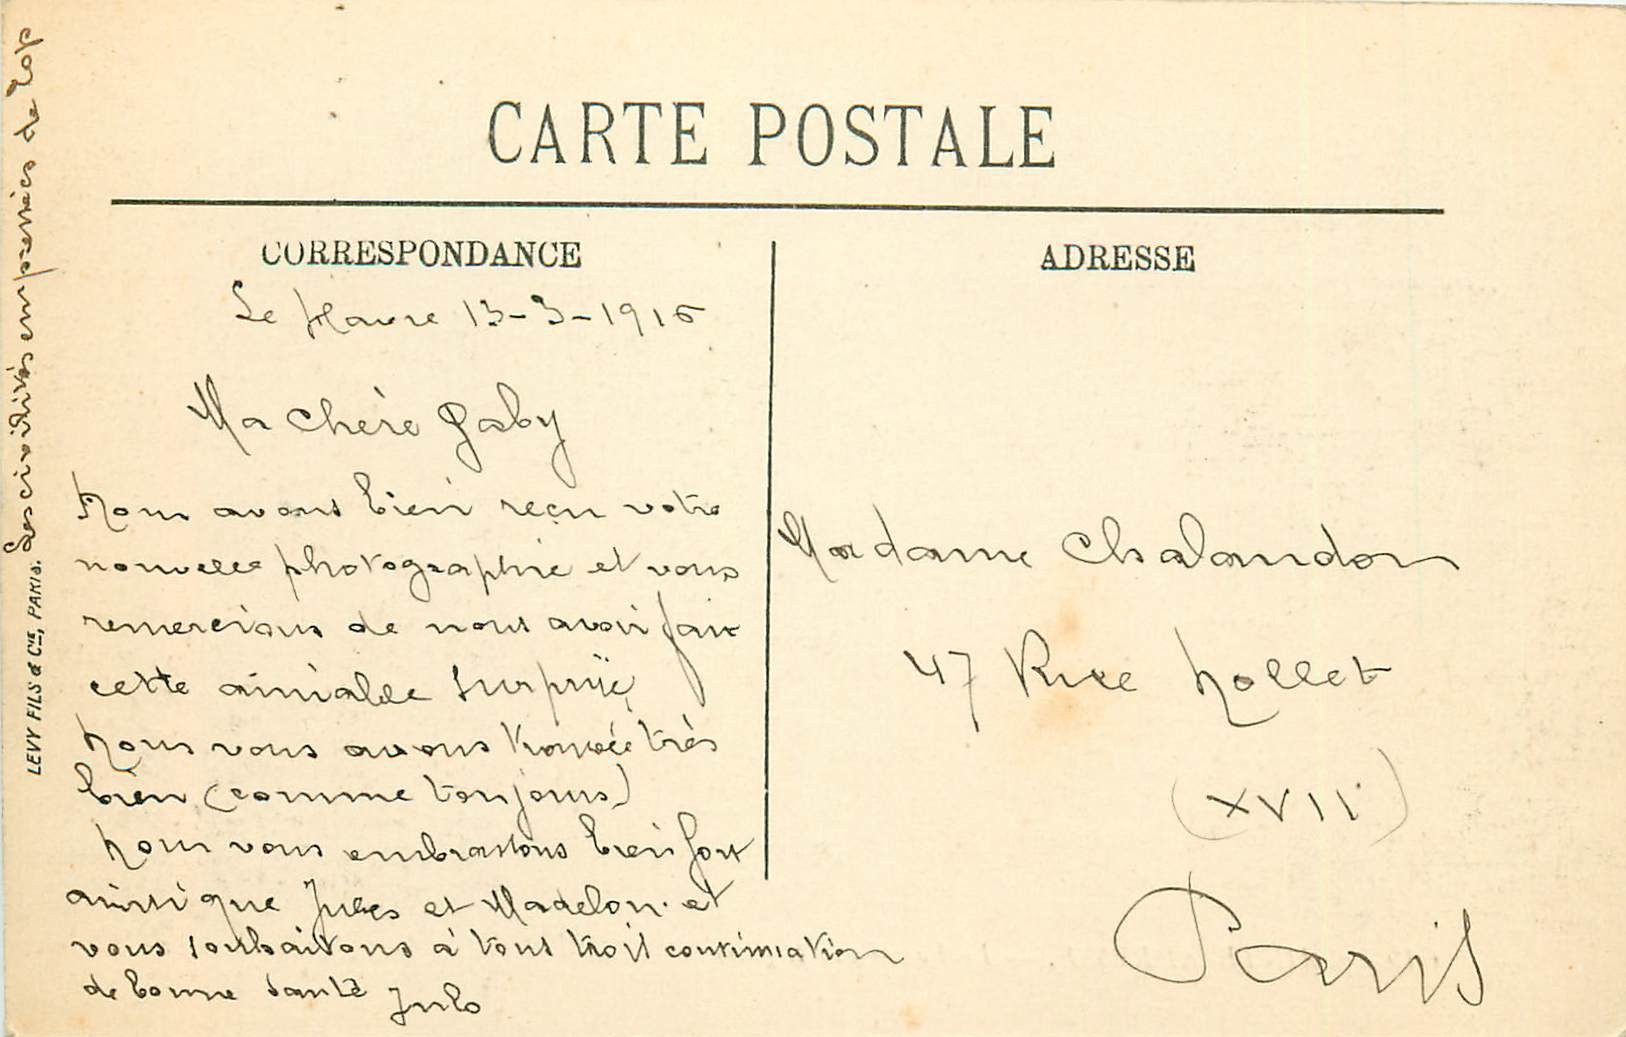 CARTE POSTALE
CORRESPONDANCE
Le Havre 13-3-1916
Ma chère Gaby
Nous avons bien reçu votre
nouvelle photographie et vous
remercions de nous avoir fait
cette aimable surprise
Nous vous avons trouvée très
bien (comme toujours)
Nous vous embrassons bien fort
ainsi que Jules et Madelon et
vous souhaitons à tous trois continuation
de bonne santé Julo
Les civilités empressées de Zop
LEVY FILS & Cie, PARIS.
ADRESSE
Madame Chalandon
47 Rue Nollet
(XVII)
Paris